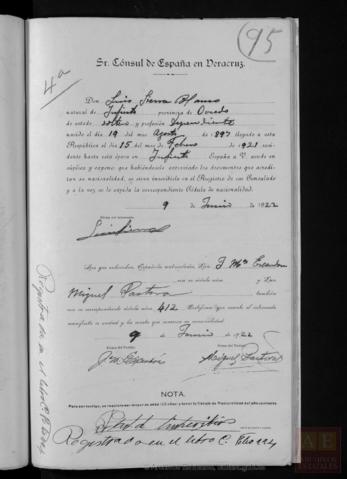 95
4ª
Sr. Cónsul de España en Veracruz.
Don Luis Sierra Blanco
natural de Infiesto provincia de Oviedo
de estado soltero y profesión dependiente
nacido el día 19 del mes Agosto de 1897 llegado a esta
República el día 15 del mes de Febrero de 1921 resi-
dente hasta esta época en Infiesto España a V. acude en
súplica y expone: que habiéndose extraviado los documentos que acredi-
tan su nacionalidad, se sirva inscribirlo en el Registro de ese Consulado
y a la vez se le expida la correspondiente Cédula de nacionalidad.
9 de Junio de 1922
Firma del interesado
Luis Sierra
Los que subscriben, Españoles matriculados, Don J. Mª
con su cédula núm. y Don
Miguel Pastora también
con su correspondiente cédula núm. 412. Certifican que cuanto el interesado
manifiesta es verdad y les consta que conserva su nacionalidad.
9 de Junio de 1922
Firma del Testigo Firma del Testigo
Miguel Pastora
NOTA.
Para ser testigo, se requiere ser mayor de edad (23 años) y tener la Cédula de Nacionalidad del año corriente.
Registrado en el libro C.
Registrado en el libro C.